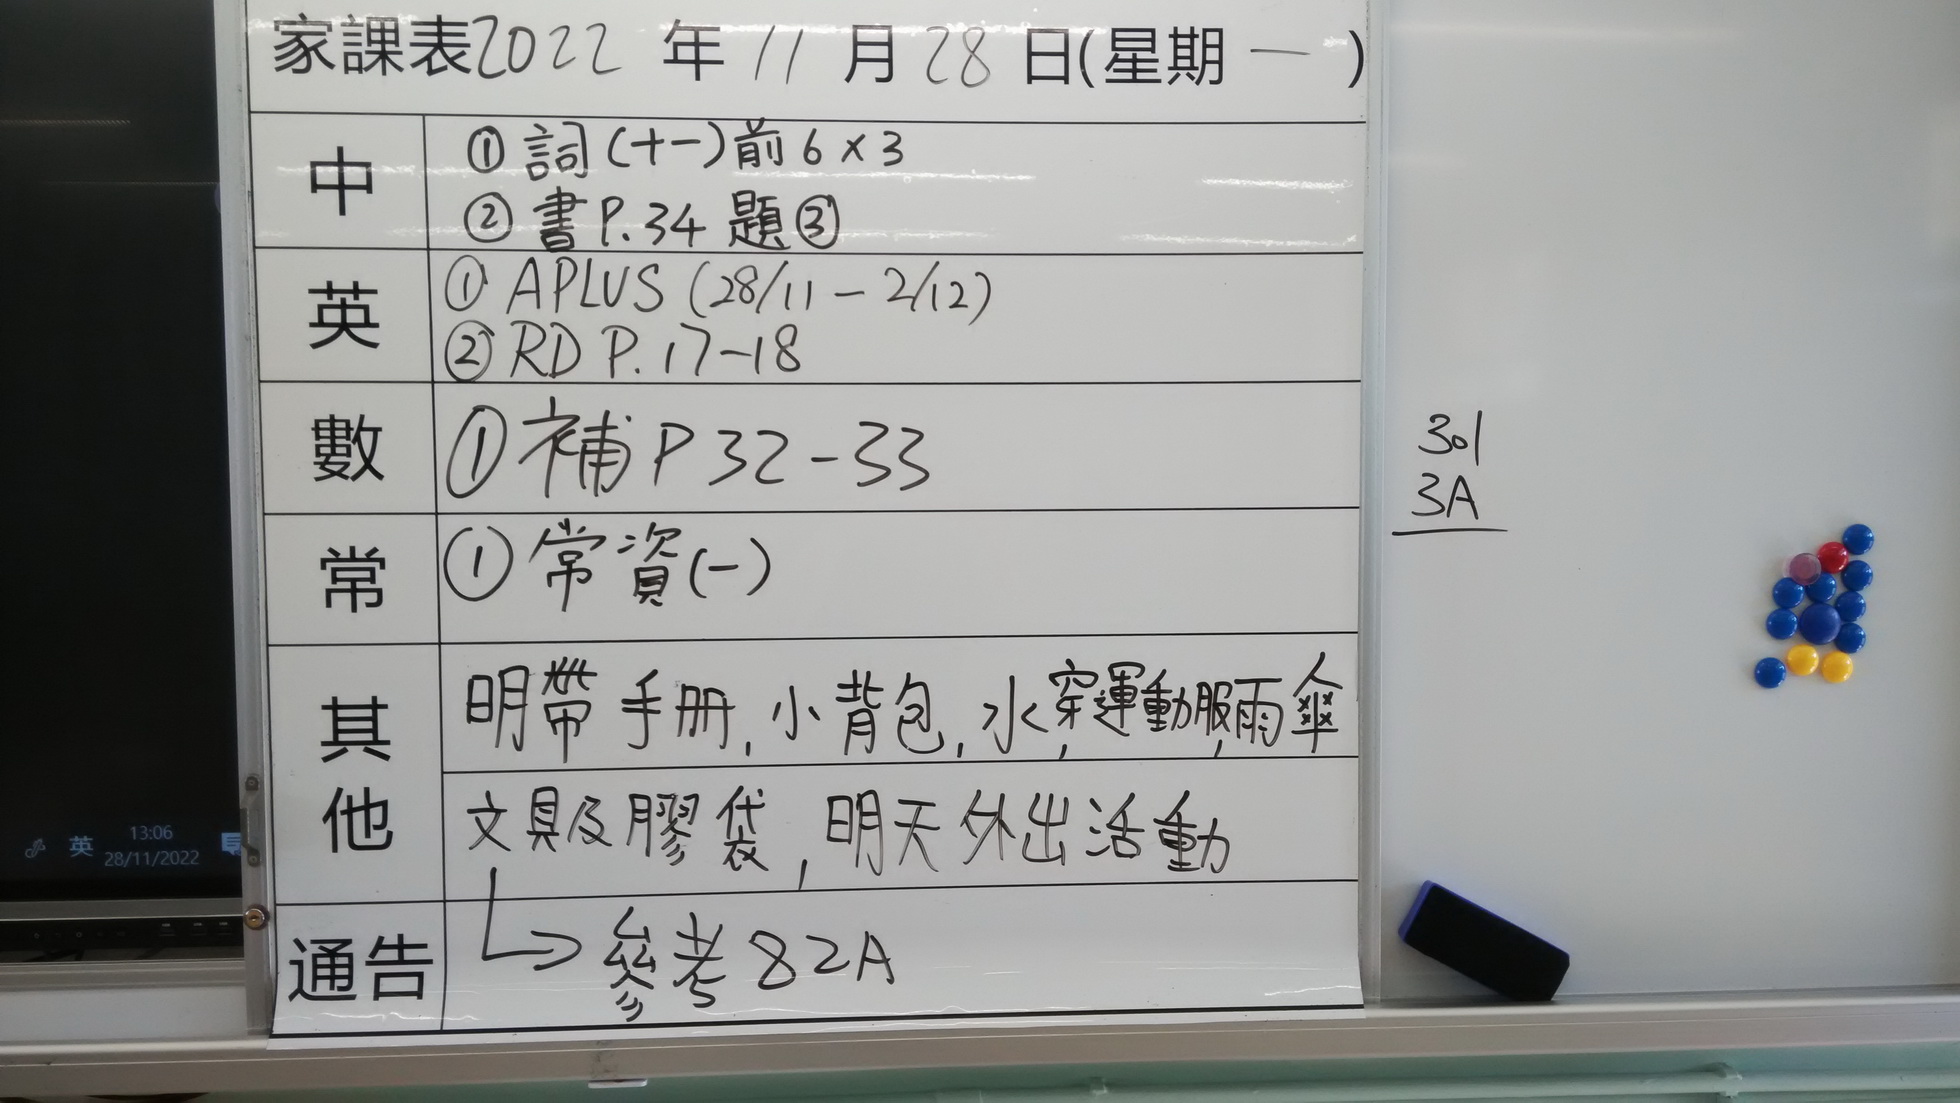 家課表2022 年 11 月 28 日(星期 一 )
中
① 詞(十一)前 6 x 3
② 書 P.34 題③
英
① APLUS (28/11 - 2/12)
② RD P.17-18
數
① 補 P 32-33
常
① 常資(一)
其他
明帶手册, 小背包, 水, 穿運動服, 雨傘
文具及膠袋, 明天外出活動
通告
→ 參考 82A
301
3A
英
13:06
28/11/2022